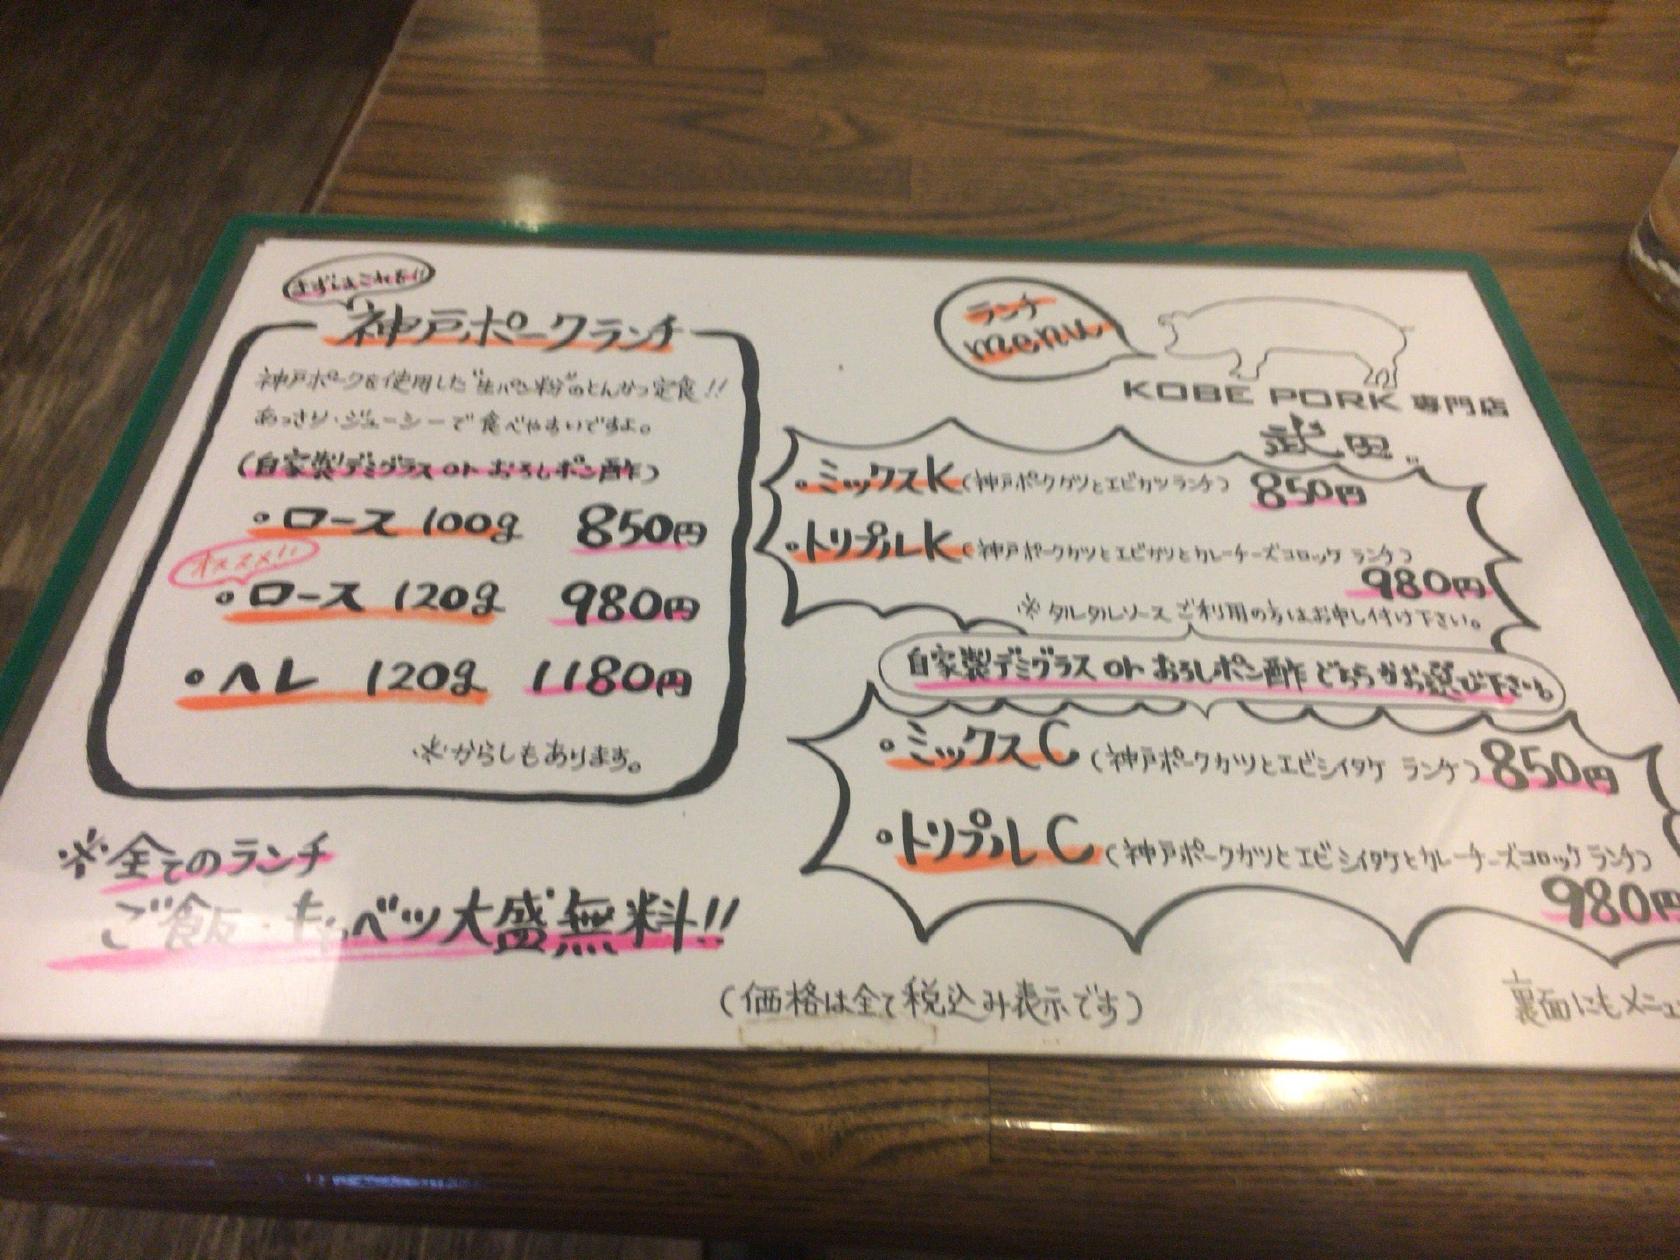 まずはこれを!!
神戸ポークランチ
神戸ポークを使用した"生パン粉"のとんかつ定食!!
あっさり・ジューシーで食べやすいですよ。
(自家製デミグラス or おろしポン酢)
・ロース 100g 850円
オススメ!!
・ロース 120g 980円
・ヘレ 120g 1180円
※からしもあります。
※全てのランチ
ご飯・キャベツ大盛無料!!
ランチ
menu
KOBE PORK 専門店
武田。
・ミックスK(神戸ポークカツとエビカツランチ) 850円
・トリプルK(神戸ポークカツとエビカツとカレーチーズコロッケ ランチ)
980円
※タルタルソースご利用の方はお申し付け下さい。
自家製デミグラス or おろしポン酢 どちらかお選び下さい。
・ミックスC(神戸ポークカツとエビシイタケ ランチ) 850円
・トリプルC(神戸ポークカツとエビシイタケとカレーチーズコロッケ ランチ)
980円
(価格は全て税込み表示です)
裏面にもメニュ